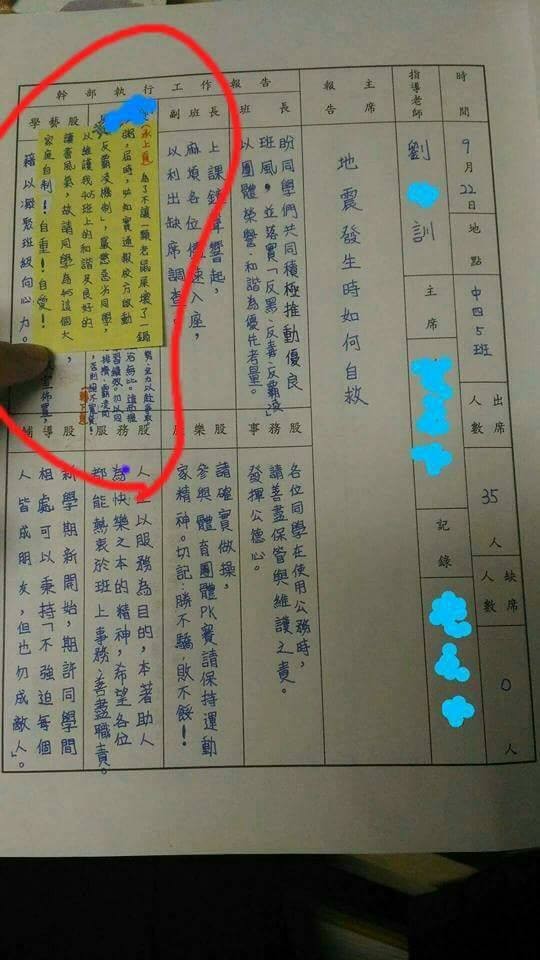 時間
9月22日
地點
中四5班
出席人數
35人
缺席人數
0人
指導老師
劉 訓
主席
記錄
主席報告
地震發生時如何自救
幹部執行工作報告
班長
盼同學們共同積極推動優良
班風,並落實「反黑、反毒、反霸凌」
以團體榮譽、和諧為優先考量。
副班長
上課鐘聲響起,
麻煩各位 速入座,
以利出缺席調查。
(承上頁)為了不讓一顆老鼠屎壞了一鍋
粥,屆時,必如實通報校方啟動
「反霸凌機制」,嚴懲惡劣同學,
以維護我405班上的和諧及良好的
讀書風氣,故請同學為405這個大
家庭自制!自重!自愛!
學藝股
藉以凝聚班級向心力。
事務股
各位同學在使用公務時,
請善盡保管與維護之責。
發揮公德心。
康樂股
請確實做操,
參與體育團體PK賽請保持運動
家精神。切記:勝不驕、敗不餒!
服務股
人生以服務為目的,本著助人
為快樂之本的精神,希望各位
都能熱衷於班上事務、善盡職責。
輔導股
新學期新開始,期許同學間
相處可以秉持「不強迫每個
人皆成朋友,但也勿成敵人」。